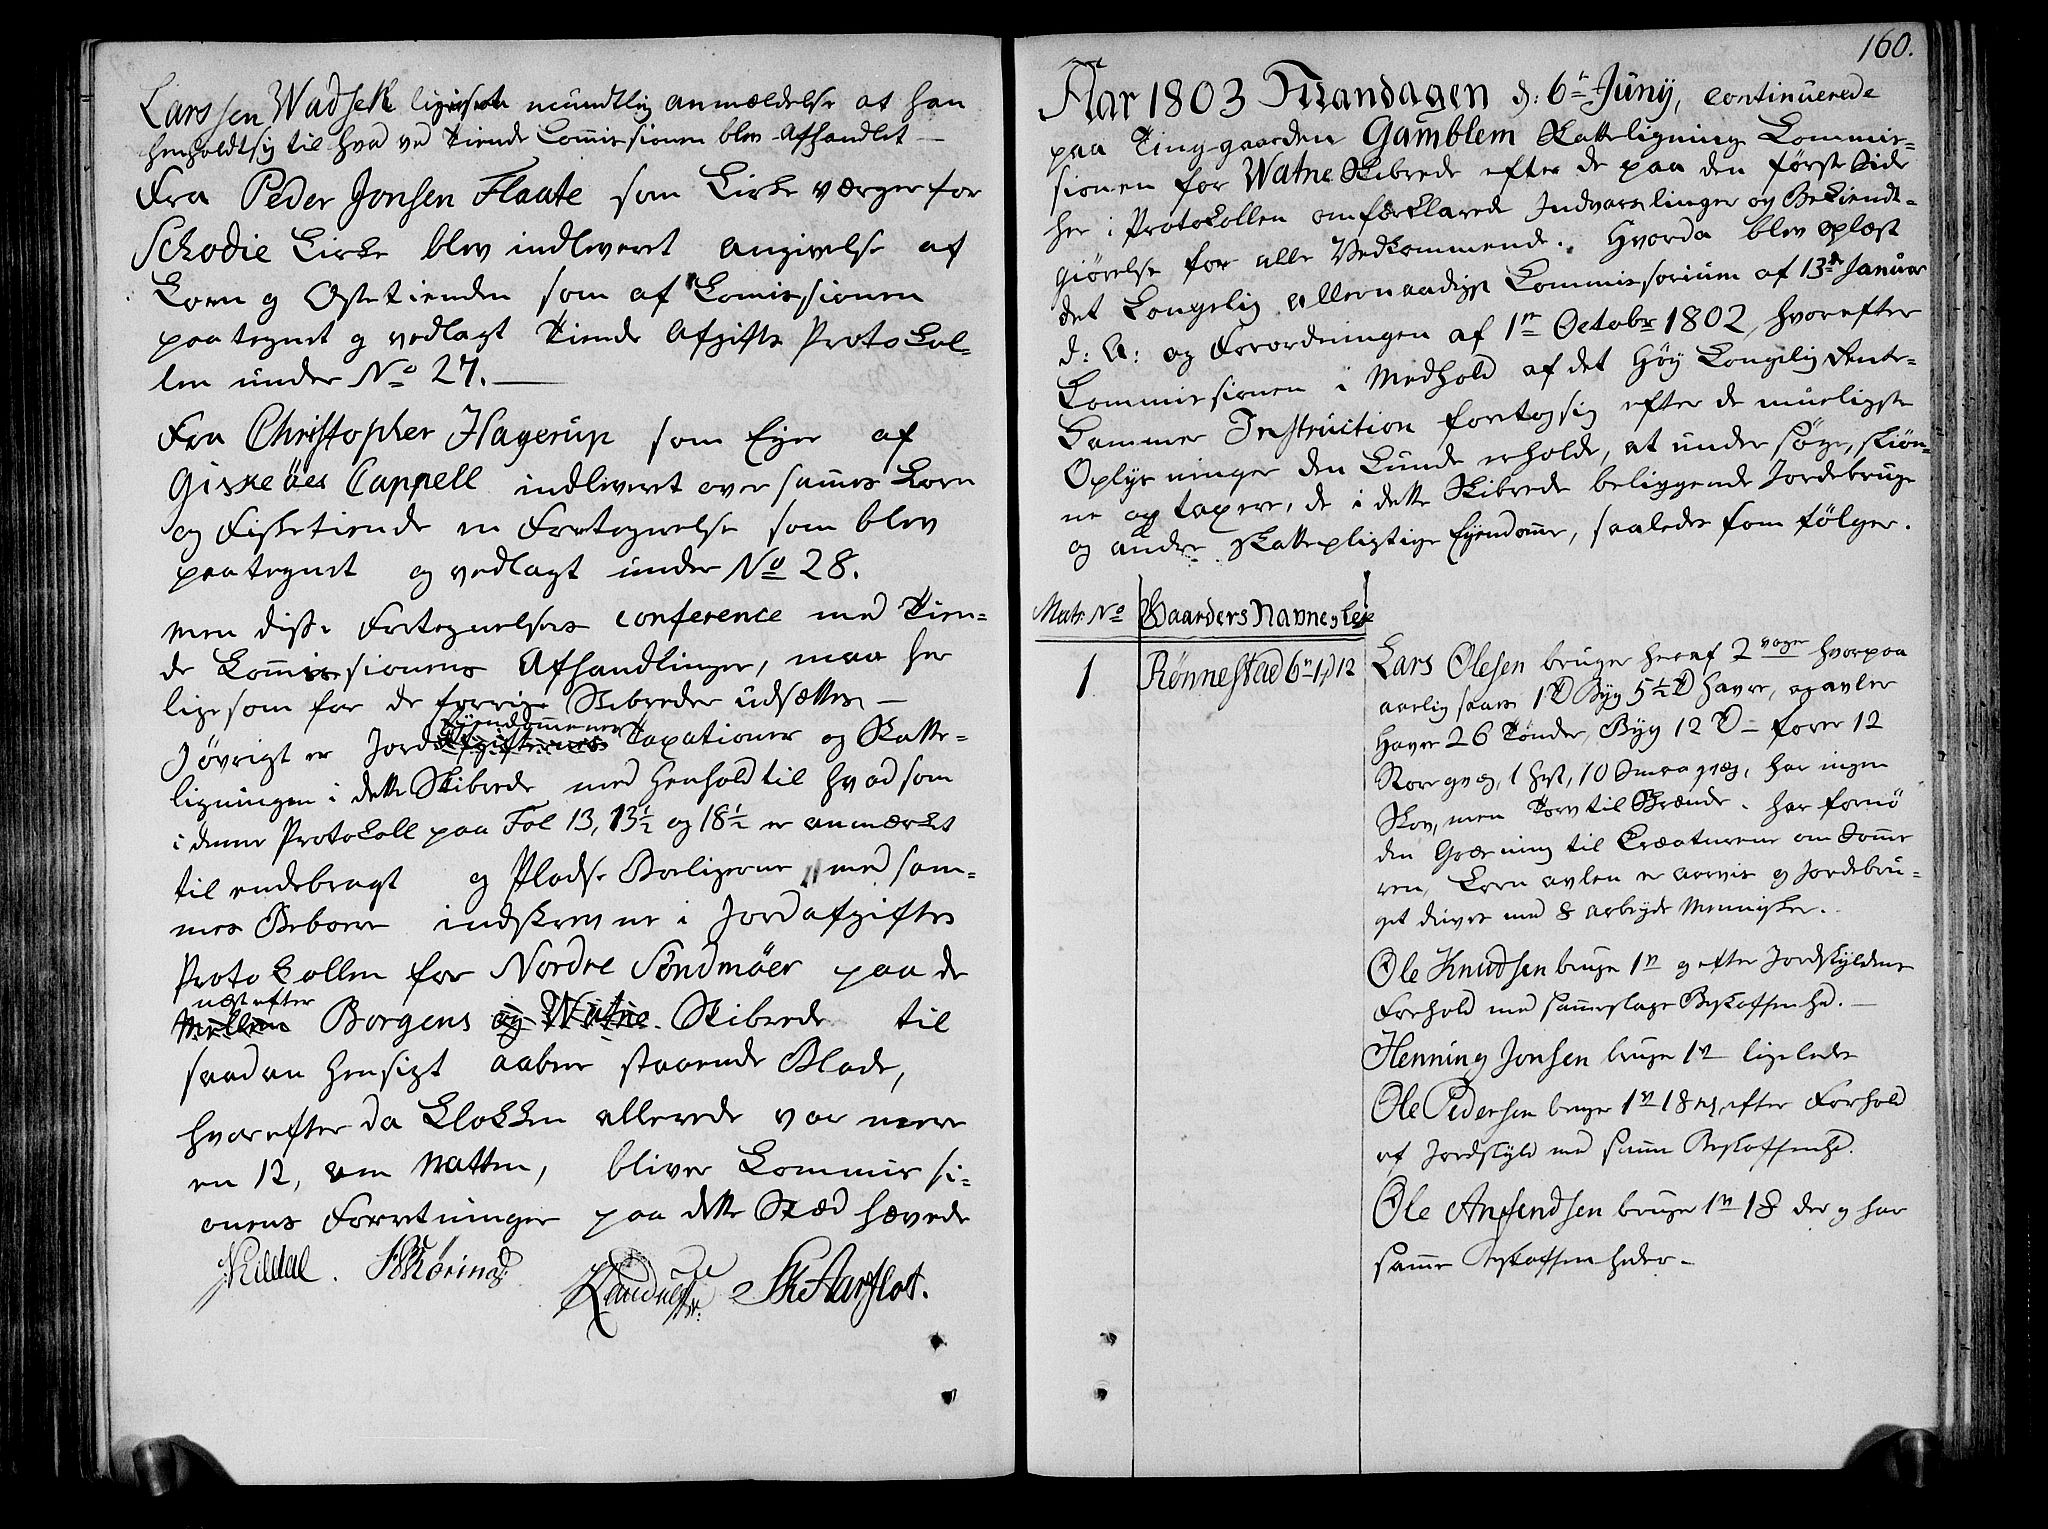 Larssen Wadsek mundtlig anmældelse at han
henholdt sig til hvad ved Tiende Commissionen blev afhandlet —
Fra Peder Jonsen Flaate som Kirke værger for
Schodie Kirke blev indleveret angivelse af
Korn og Ostetienden som af Comissionen
paategnet og vedlagt Tiende Afgifts Protokol-
len under No 27. —
Fra Christopher Hagerup som Eyer af
Giskeöes Cappell indleveret over sammes Korn
og Fisketiende en Fortegnelse som blev
paategnet og vedlagt under No 28.
men disse Fortegnelsers conference med Tien-
de Commissionens Afhandlinger, maa her
ligesom for de forrige Skibreder udsættes —
I øvrigt er Jord Eyendommenes Taxationer og Skatte-
ligningen i dette Skibrede med Henhold til hvad som
i denne Protokoll paa Fol 13, 13½ og 18½ er anmærket
tilendebragt og Pladse Boeligerne med sam-
mes Beboere indskrevne i Jordafgifts
Protokollen for Nordre Söndmöer paa de
næst efter Borgens Skibrede til
saadan Hensigt aabne staaende Blade,
hvorefter da Klokken allerede var mere
en 12, om Natten, bliver Commissi-
onens Forretninger paa dette Stæd hævede
Kildal.
Aarflot.
160.
Aar 1803 Mandagen d: 6te Juny, continuerede
paa Ting-gaarden Gamblem Skatteligning Commis-
sionen for Watne Skibrede efter de paa den første Side
her i Protokollen omforklarede Indvarslinger og Bekiendt-
giørelse for alle Vedkommende. Hvorda blev oplæst
det Kongelig allernaadigst Commissorium af 13de Januar
d: A: og Forordningen af 1ste Octobr 1802, hvorefter
Commissionen i Medhold af det Høy Kongelig Rente-
Kammer Instruction foretog sig efter de mueligste
Oplysninger den kunde erholde, at undersøge, skiøn-
ne og taxere, de i dette Skibrede beliggende Jordebruge
og andre skattepligtige Eyendomme, saaledes som følger.
Matr. No Gaarders Navne og Leje
1. Rønnestad 6 v 1 p 12 Lars Olesen bruger heraf 2 voger hvorpaa
aarlig saaes 1 T Byg 5½ T Havre, og avler
Havre 26 Tønder, Byg 12 T — foder 12
Storr qvæg, 1 Hest, 10 Smaa qvæg, har ingen
Skov, men Torv til Brænde. har fornø
den Græsning til Creaturene om Somme
ren, Korn avlen er aarvis og Jordebru-
get drives med 8 arbeyds Mennisker.
Ole Knudsen bruger 1 v og efter Jordskyldens
Forhold med sammeslags Beskaffenhed. —
Henning Jonsen bruger 1 v ligeledes
Ole Pedersen bruger 1 v 18 efter Forhold
af Jordskyld med samme Beskaffenhed.
Ole bruger 1 v 18 der og har
samme Beskaffenheder —